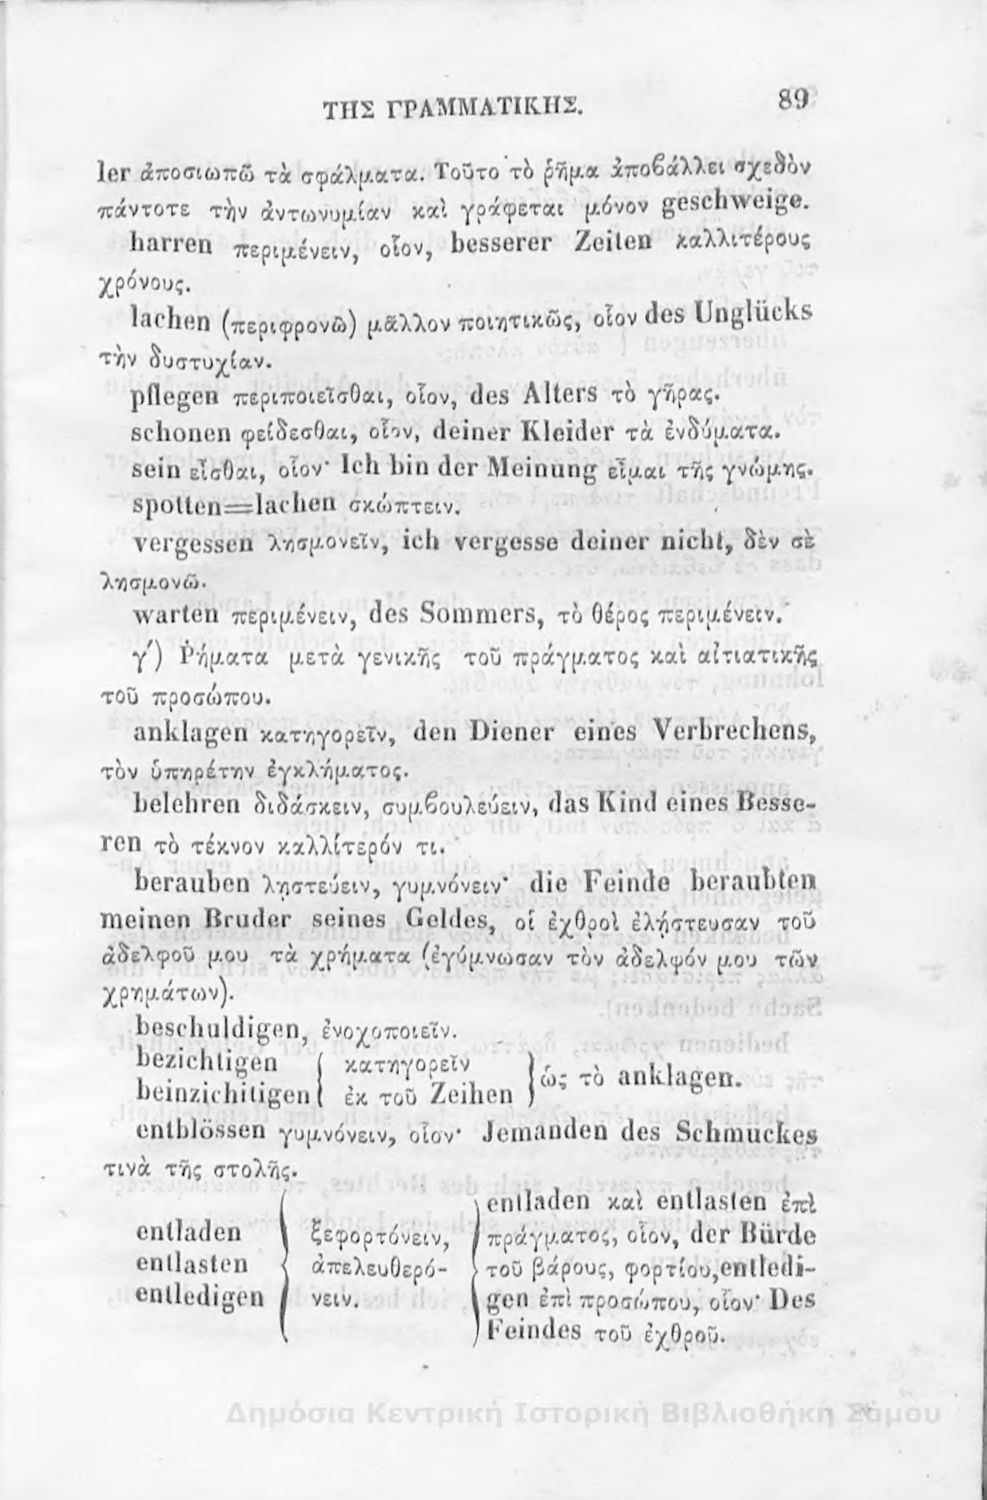 ΤΗΣ ΓΡΑΜΜΑΤΙΚΗΣ. 89
ler ἀποσιωπῶ τὰ σφάλματα. Τοῦτο τὸ ῥῆμα ἀποβάλλει σχεδὸν
πάντοτε τὴν ἀντωνυμίαν καὶ γράφεται μόνον geschweige.
harren περιμένειν, οἷον, besserer Zeiten καλλιτέρους
χρόνους.
lachen (περιφρονῶ) μᾶλλον ποιητικῶς, οἷον des Unglücks
τὴν δυστυχίαν.
pflegen περιποιεῖσθαι, οἷον, des Alters τὸ γῆρας.
schonen φείδεσθαι, οἷον, deiner Kleider τὰ ἐνδύματα.
sein εἶσθαι, οἷον· Ich bin der Meinung εἶμαι τῆς γνώμης.
spotten=lachen σκώπτειν.
vergessen λησμονεῖν, ich vergesse deiner nicht, δὲν σὲ
λησμονῶ.
warten περιμένειν, des Sommers, τὸ θέρος περιμένειν.
γ′) Ῥήματα μετὰ γενικῆς τοῦ πράγματος καὶ αἰτιατικῆς
τοῦ προσώπου.
anklagen κατηγορεῖν, den Diener eines Verbrechens,
τὸν ὑπηρέτην ἐγκλήματος.
belehren διδάσκειν, συμβουλεύειν, das Kind eines Besse-
ren τὸ τέκνον καλλίτερόν τι.
berauben λῃστεύειν, γυμνόνειν· die Feinde beraubten
meinen Bruder seines Geldes, οἱ ἐχθροὶ ἐλήστευσαν τοῦ
ἀδελφοῦ μου τὰ χρήματα (ἐγύμνωσαν τὸν ἀδελφόν μου τῶν
χρημάτων).
beschuldigen, ἐνοχοποιεῖν.
bezichtigen { κατηγορεῖν } ὡς τὸ anklagen.
beinzichitigen { ἐκ τοῦ Zeihen }
entblössen γυμνόνειν, οἷον· Jemanden des Schmuckes
τινὰ τῆς στολῆς.
entladen καὶ entlasten ἐπὶ
entladen { ξεφορτόνειν, } πράγματος, οἷον, der Bürde
entlasten ἀπελευθερό- τοῦ βάρους, φορτίου, entledi-
entledigen νειν. gen ἐπὶ προσώπου, οἷον· Des
Feindes τοῦ ἐχθροῦ.
Δημόσια Κεντρική Ιστορική Βιβλιοθήκη Σάμου